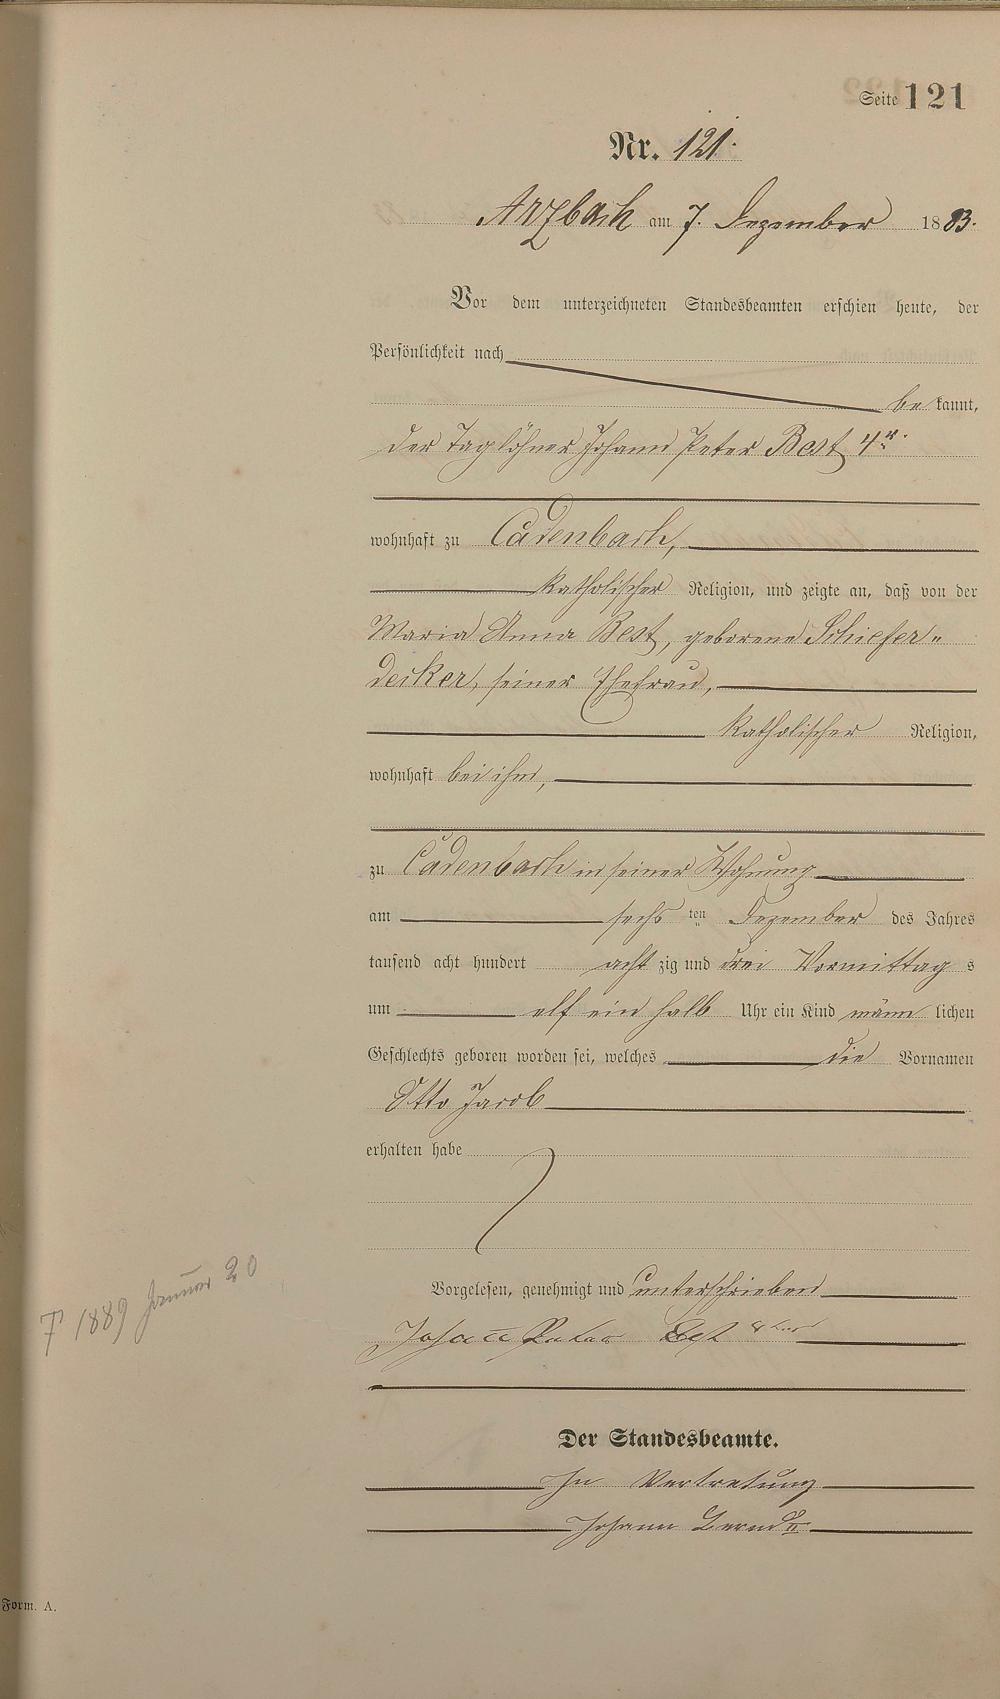 Seite 121
Nr. 121.
Arzbach am 7. Dezember 1883.
Vor dem unterzeichneten Standesbeamten erschien heute, der
Persönlichkeit nach
bekannt,
der Taglöhner Johann Peter Best 4r.
wohnhaft zu Cadenbach,
katholischer Religion, und zeigte an, daß von der
Maria Anna Best, geborene Schiefer-
decker, seiner Ehefrau,
katholischer Religion,
wohnhaft bei ihm,
zu Cadenbach in seiner Wohnung
am sechsten Dezember des Jahres
tausend acht hundert achtzig und drei Vormittags
um elf ein halb Uhr ein Kind männlichen
Geschlechts geboren worden sei, welches die Vornamen
Otto Jacob
erhalten habe
Vorgelesen, genehmigt und unterschrieben
Johann Peter Best
† 1889 Januar 20
Der Standesbeamte.
In Vertretung
Johann
Form. A.